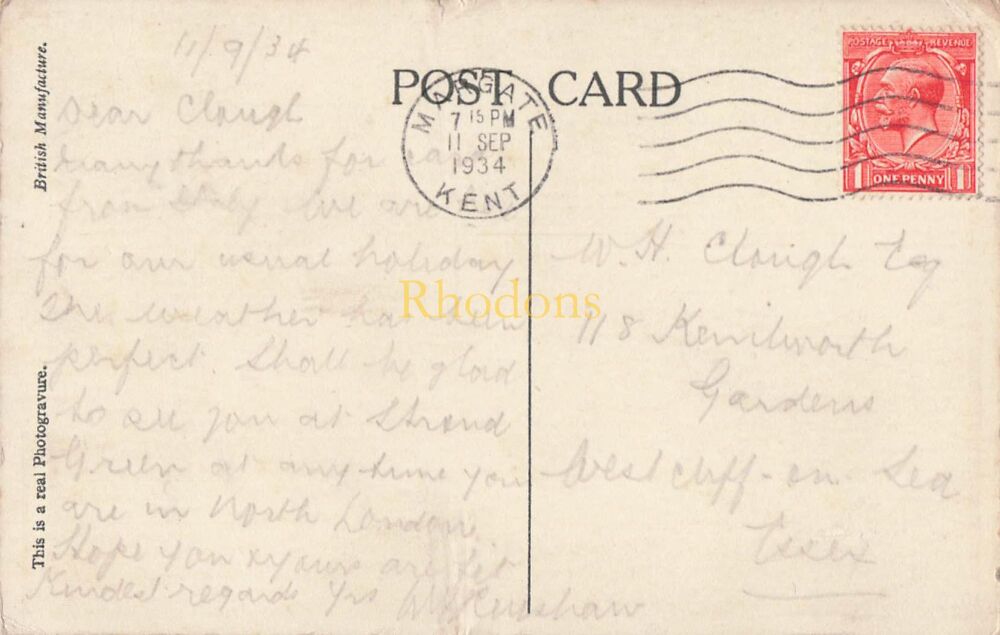 11/9/34
Dear Clough
Many thanks for card
from we are
for our usual holiday
The weather has been
perfect. Shall be glad
to see you at Stroud
Green at any time you
are in North London.
Hope you & yours are fit
Kindest regards Yrs
POST CARD
MARGATE
7 15 PM
11 SEP
1934
KENT
POSTAGE REVENUE
1 ONE PENNY 1
W. H. Clough Esq
118 Kenilworth
Gardens
Westcliff-on-Sea
Essex
British Manufacture.
This is a real Photogravure.
Rhodons